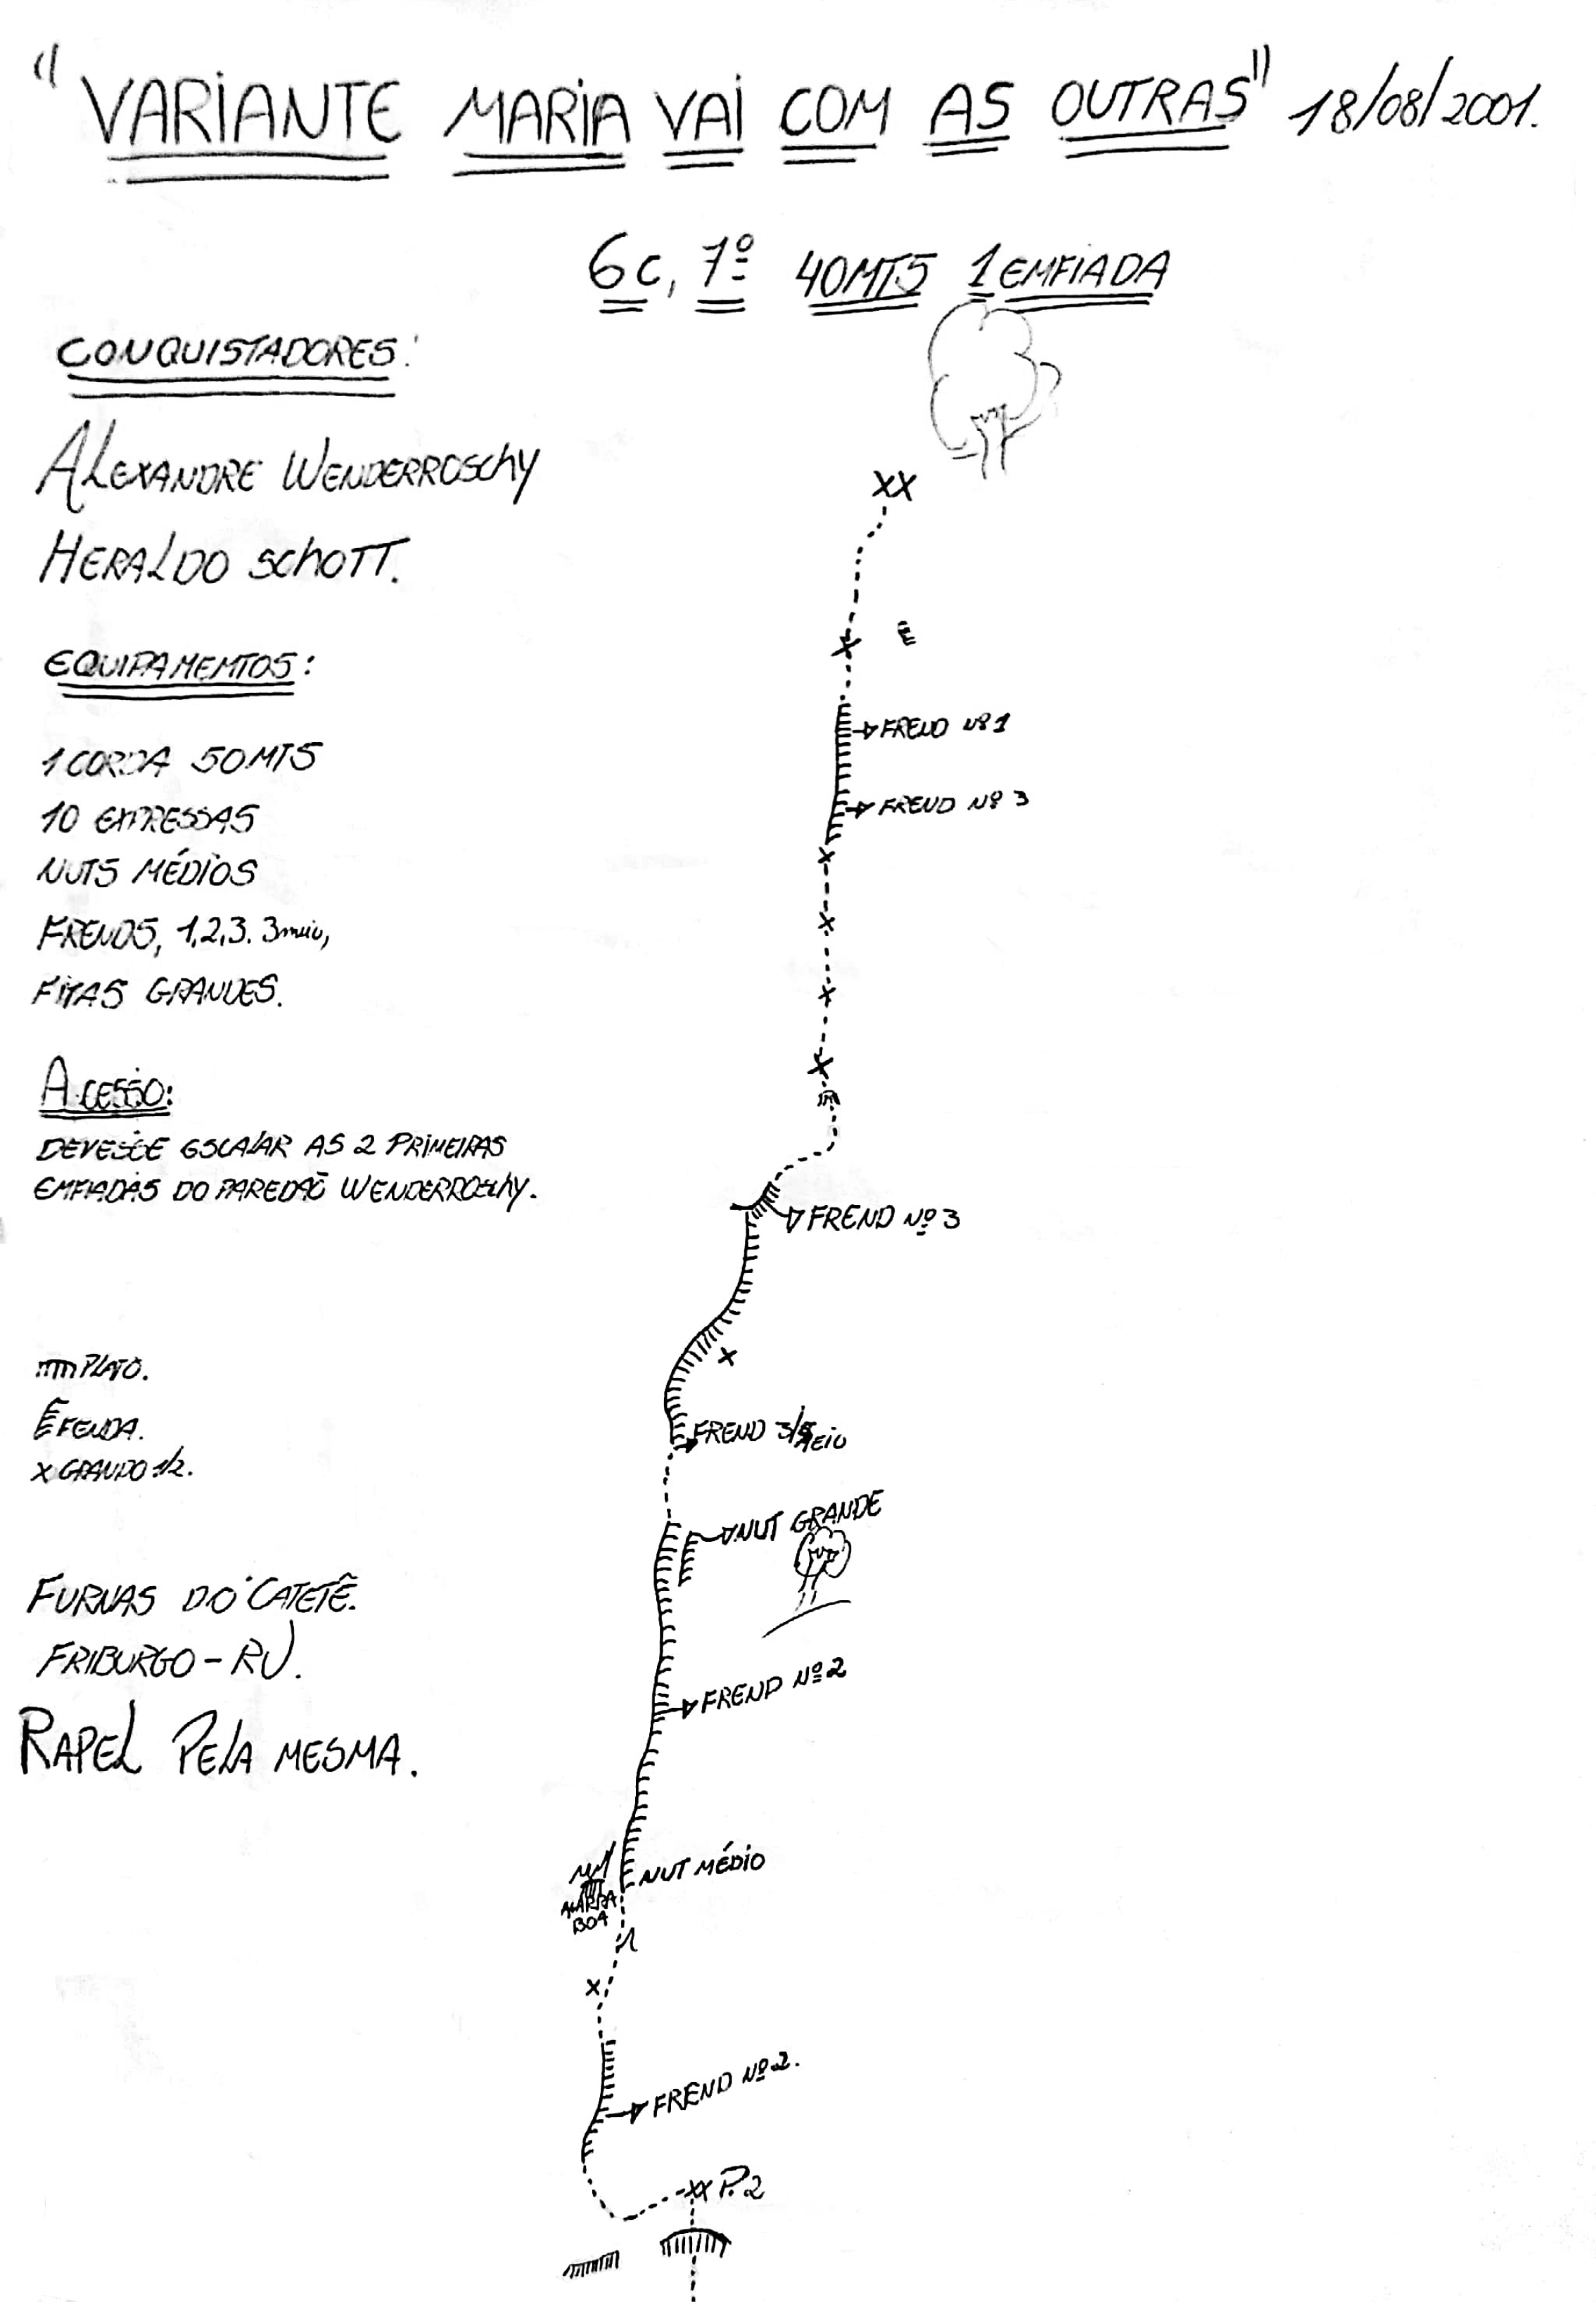 "VARIANTE MARIA VAI COM AS OUTRAS" 18/08/2001.
6c, 7º 40MTS 1 EMFIADA
CONQUISTADORES:
ALEXANDRE WENDERROSCHY
HERALDO SCHOTT.
EQUIPAMEMTOS:
1 CORDA 50MTS
10 EXPRESSAS
NUTS MÉDIOS
FRENDS, 1,2,3. 3meio,
FITAS GRANDES.
ACESSO:
DEVESSE ESCALAR AS 2 PRIMEIRAS
EMFIADAS DO PAREDÃO WENDERROSCHY.
PLATO.
FENDA.
X GRANPO 1/2.
FURNAS DO CATETÊ.
FRIBURGO - RJ.
RAPEL PELA MESMA.
XX
X
FREND Nº 1
FREND Nº 3
X
X
X
X
FREND Nº 3
X
FREND 3/MEIO
NUT GRANDE
FREND Nº 2
NUT MÉDIO
AGARRA
BOA
X
FREND Nº 2.
XX P.2